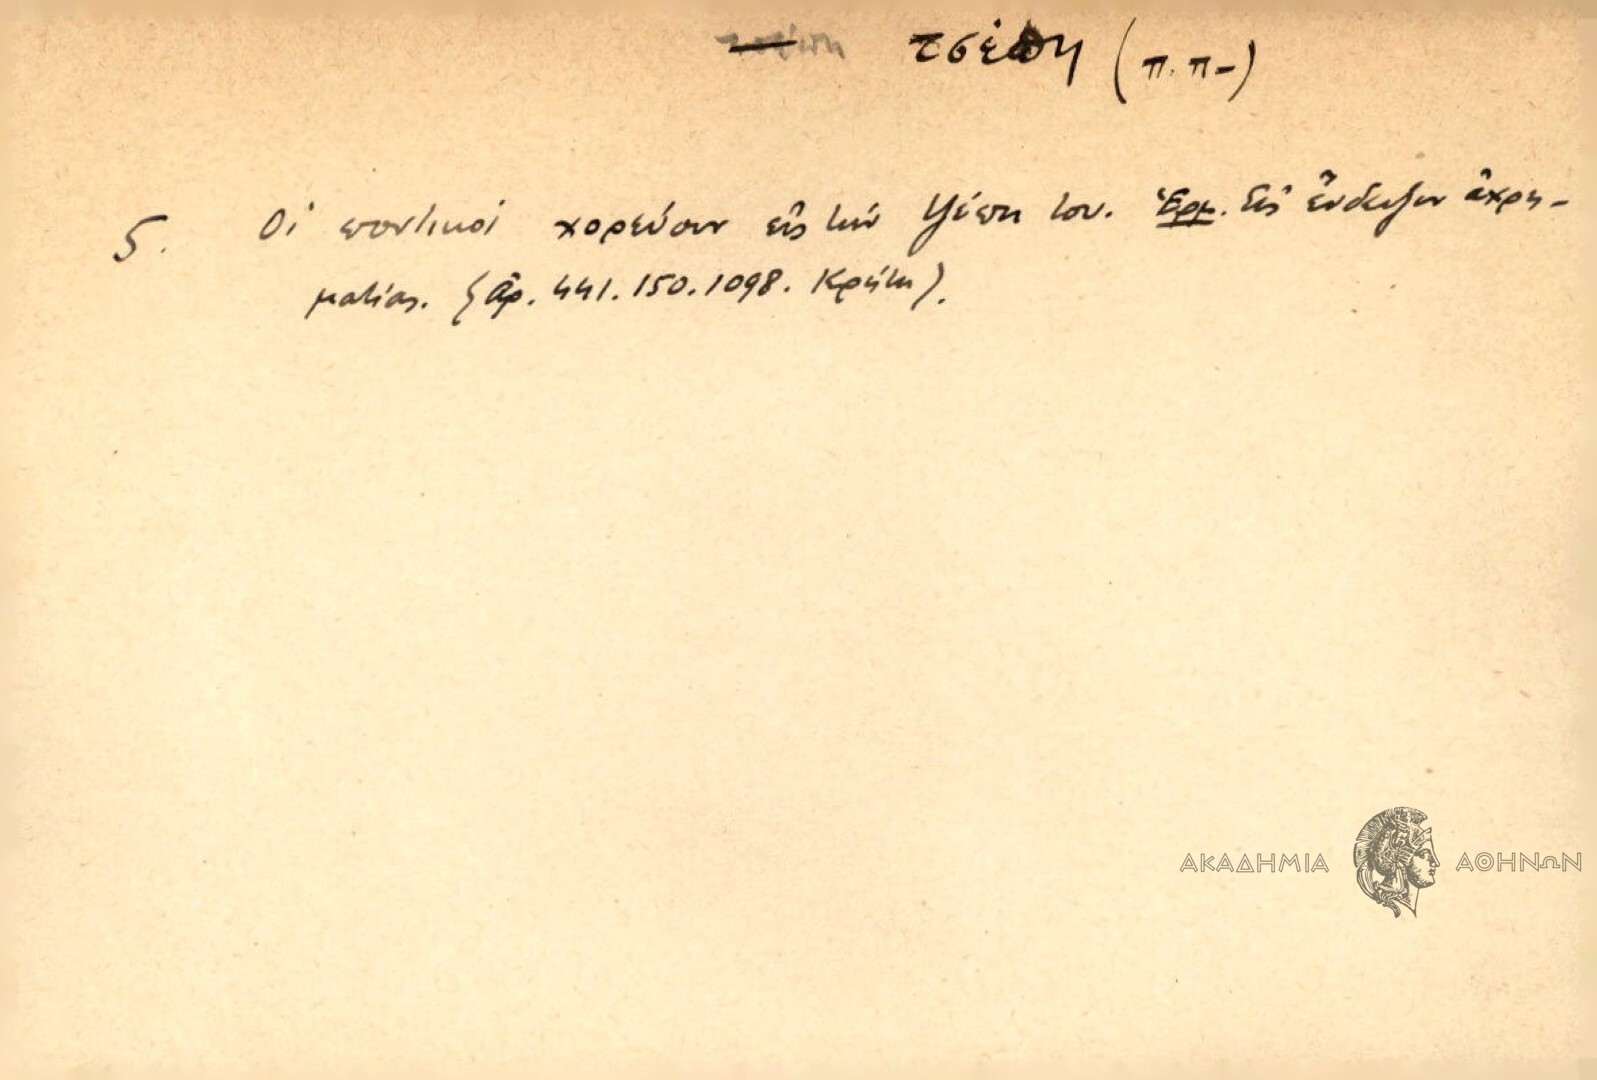 τσέπη (π. π-)
5. Οἱ ποντικοί χορεύουν εἰς τήν τζέπη του. Ἑρμ. Εἰς ἔνδειξιν ἀχρη-
ματίας. (ἀρ. 441. 150. 1098. Κρήτη).
ΑΚΑΔΗΜΙΑ ΑΘΗΝΩΝ